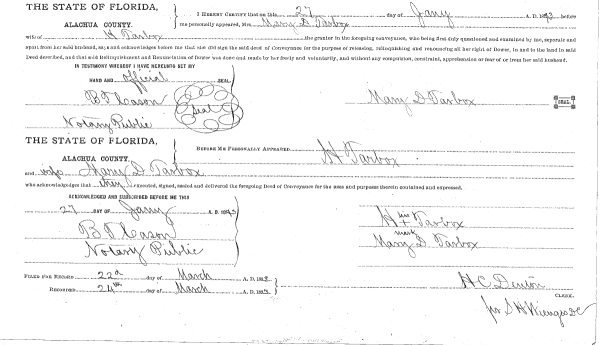 THE STATE OF FLORIDA,
ALACHUA COUNTY.
I HEREBY CERTIFY that on this 27 day of Jany A. D. 1893, before
me personally appeared, Mrs. Mary D Tarbox
wife of H Tarbox the grantor in the foregoing conveyance, who being first duly questioned and examined by me, separate and
apart from her said husband, says and acknowledges before me that she did sign the said deed of Conveyance for the purpose of releasing, relinquishing and renouncing all her right of Dower, in and to the land in said
Deed described, and that said Relinquishment and Renunciation of Dower was done and made by her freely and voluntarily, and without any compulsion, constraint, apprehension or fear of or from her said husband.
IN TESTIMONY WHEREOF I HAVE HEREUNTO SET MY
HAND AND official SEAL
B F Cason
Seal
Mary D Tarbox SEAL.
Notary Public
THE STATE OF FLORIDA,
ALACHUA COUNTY.
BEFORE ME PERSONALLY APPEARED H Tarbox
and wife Mary D. Tarbox
who acknowledges that they executed, signed, sealed and delivered the foregoing Deed of Conveyance for the uses and purposes therein contained and expressed.
ACKNOWLEDGED AND SUBSCRIBED BEFORE ME THIS
27 DAY OF Jany A. D. 1893
B F Cason
Notary Public
H his + Tarbox
mark
Mary D. Tarbox
FILED FOR RECORD 22d day of March A. D. 1893
RECORDED 24th day of March A. D. 1893
H C Denton
CLERK.
per S H Wienges DC